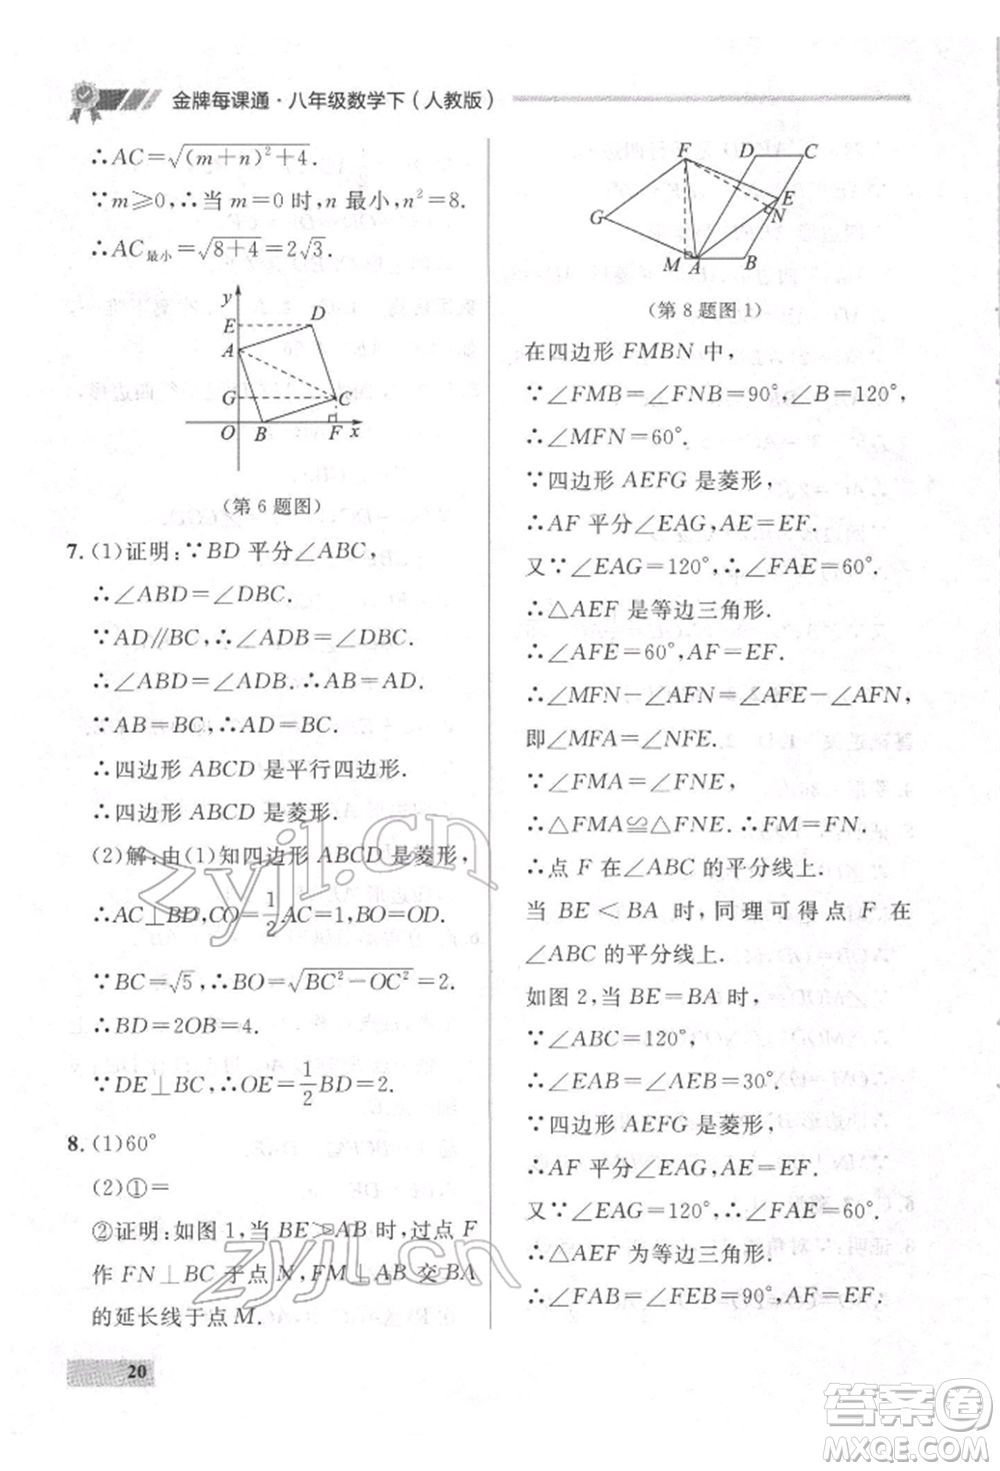 金牌每课通·八年级数学下(人教版)
∴AC=√((m+n)²+4).
∵m≥0,∴当 m=0 时,n 最小,n²=8.
∴AC最小=√(8+4)=2√3.
y
E
D
A
G
C
O
B
F
x
(第 6 题图)
7. (1)证明:∵BD 平分∠ABC,
∴∠ABD=∠DBC.
∵AD∥BC,∴∠ADB=∠DBC.
∴∠ABD=∠ADB.∴AB=AD.
∵AB=BC,∴AD=BC.
∴四边形 ABCD 是平行四边形.
∴四边形 ABCD 是菱形.
(2)解:由(1)知四边形 ABCD 是菱形,
∴AC⊥BD,CO=1/2AC=1,BO=OD.
∵BC=√5,∴BO=√(BC²-OC²)=2.
∴BD=2OB=4.
∵DE⊥BC,∴OE=1/2BD=2.
8. (1)60°
(2)①=
②证明:如图 1,当 BE>AB 时,过点 F
作 FN⊥BC 于点 N,FM⊥AB 交 BA
的延长线于点 M.
20
F
D
C
G
E
N
M
A
B
(第 8 题图 1)
在四边形 FMBN 中,
∵∠FMB=∠FNB=90°,∠B=120°,
∴∠MFN=60°.
∵四边形 AEFG 是菱形,
∴AF 平分∠EAG,AE=EF.
又∵∠EAG=120°,∴∠FAE=60°.
∴△AEF 是等边三角形.
∴∠AFE=60°,AF=EF.
∴∠MFN-∠AFN=∠AFE-∠AFN,
即∠MFA=∠NFE.
∵∠FMA=∠FNE,
∴△FMA≌△FNE.∴FM=FN.
∴点 F 在∠ABC 的平分线上.
当 BE<BA 时,同理可得点 F 在
∠ABC 的平分线上.
如图 2,当 BE=BA 时,
∵∠ABC=120°,
∴∠EAB=∠AEB=30°.
∵四边形 AEFG 是菱形,
∴AF 平分∠EAG,AE=EF.
又∵∠EAG=120°,∴∠FAE=60°.
∴△AEF 为等边三角形.
∴∠FAB=∠FEB=90°,AF=EF.
zyjl.cn
zyjl.cn
答案圈
MXQE.COM